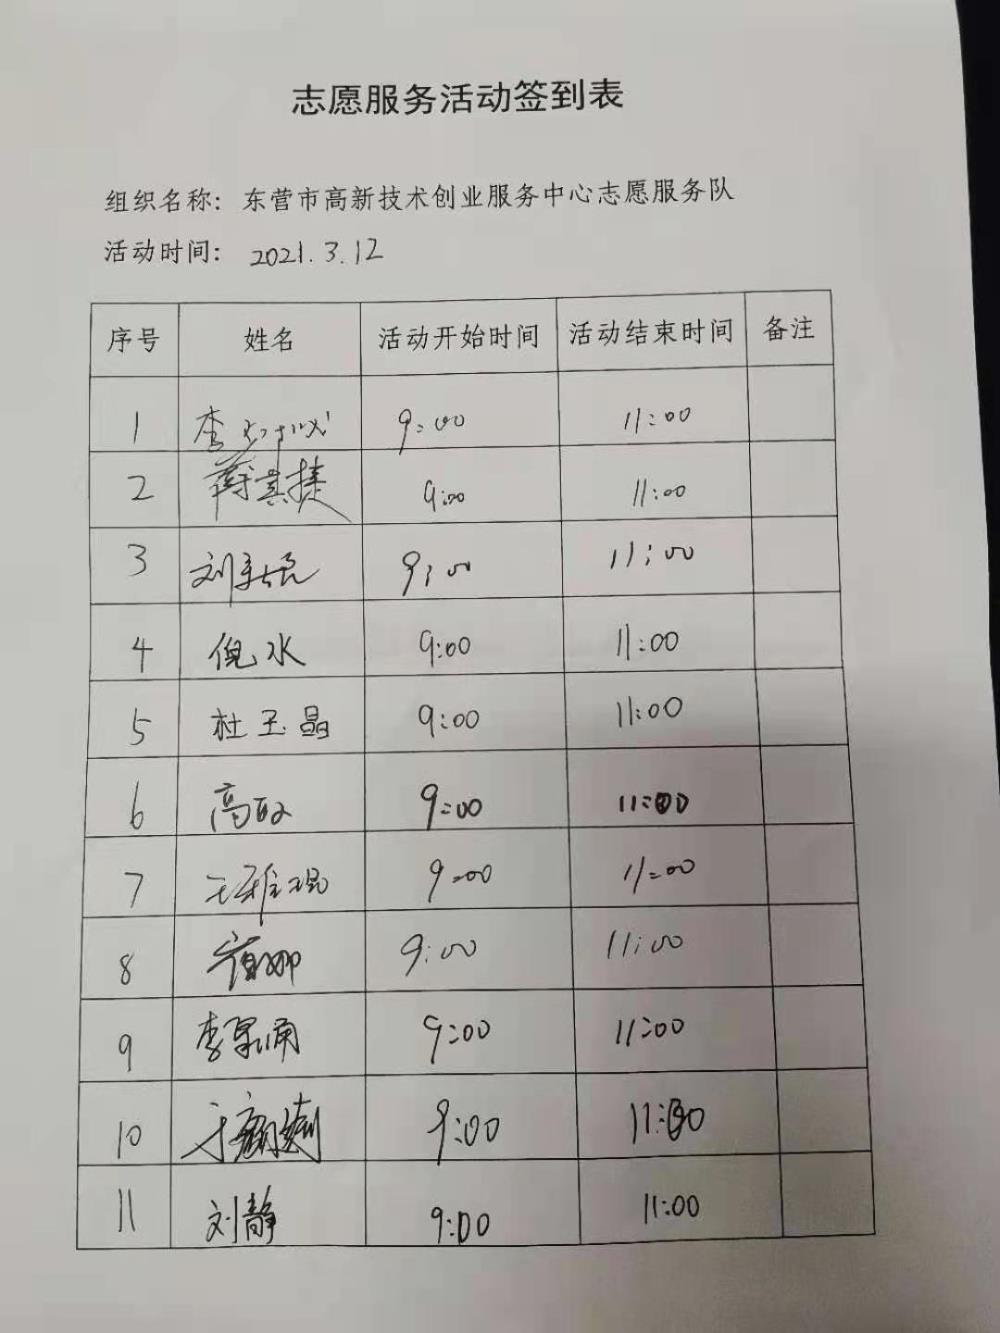 志愿服务活动签到表
组织名称: 东营市高新技术创业服务中心志愿服务队
活动时间: 2021.3.12
序号 姓名 活动开始时间 活动结束时间 备注
1 李 9:00 11:00
2 蒋其捷 9:00 11:00
3 刘 9:00 11:00
4 倪水 9:00 11:00
5 杜玉晶 9:00 11:00
6 高 9:00 11:00
7 王雅琨 9:00 11:00
8 9:00 11:00
9 李 9:00 11:00
10 于 9:00 11:00
11 刘静 9:00 11:00